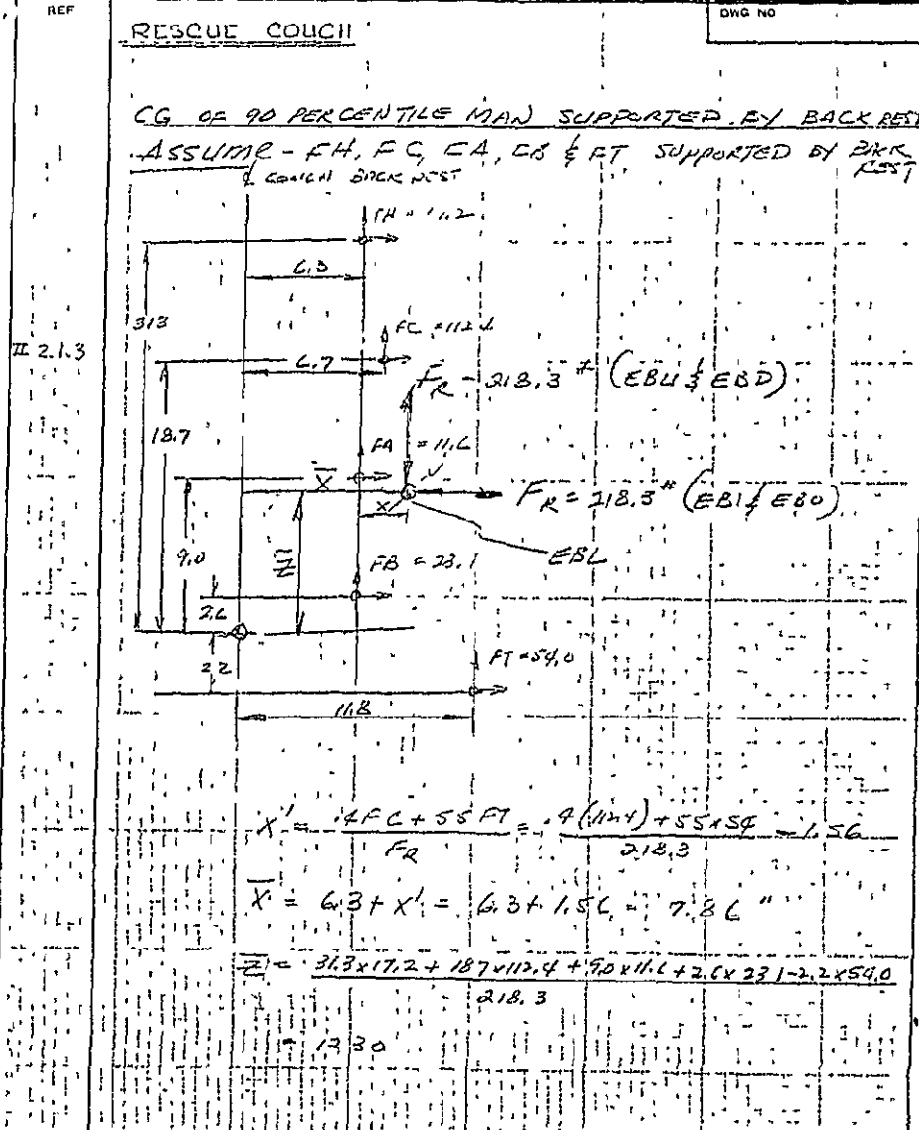 REF
DWG NO
RESCUE COUCH
CG OF 90 PERCENTILE MAN SUPPORTED BY BACK REST
ASSUME - FH, FC, FA, FB & FT SUPPORTED BY BACK REST
℄ COUCH BACK REST
FH = 17.2
6.3
31.3
FC = 112.4
II 2.1.3
6.7
FR = 218.3 # (EBU & EBD)
18.7
FA = 11.6
X̄
X'
FR = 218.3 # (EBI & EBO)
9.0
Z̄
EBL
FB = 23.1
2.6
2.2
FT = 54.0
11.8
X' = .4FC + 5.5 FT / FR = .4(112.4) + 5.5x54 / 218.3 = 1.56
X̄ = 6.3 + X' = 6.3 + 1.56 = 7.86"
Z̄ = 31.3x17.2 + 18.7x112.4 + 9.0x11.6 + 2.6x23.1 - 2.2x54.0 / 218.3
= 12.30